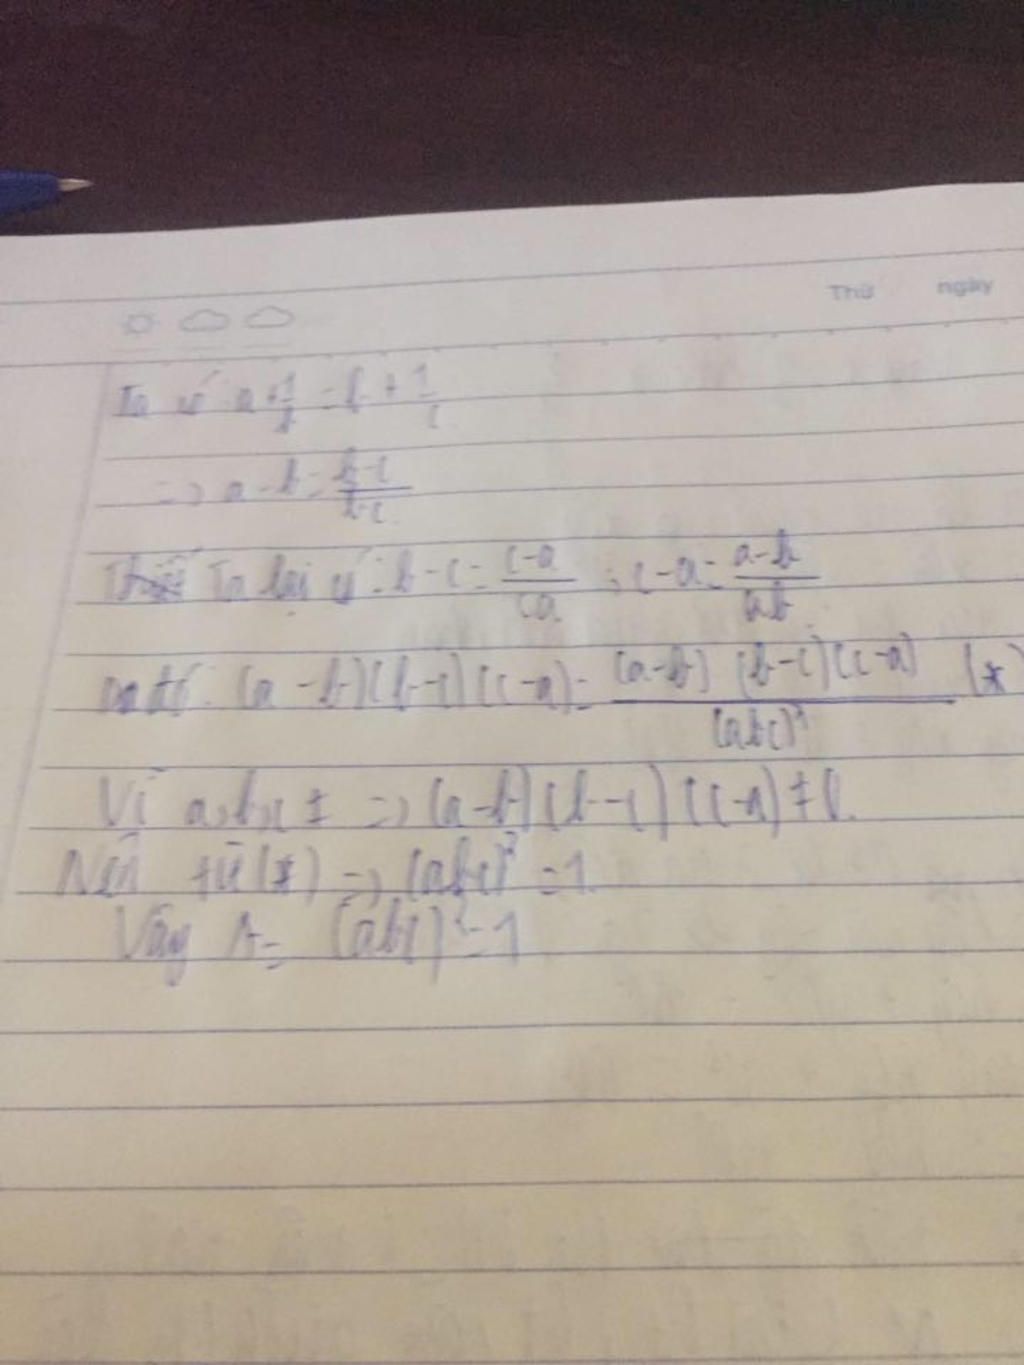 Thứ ngày
Ta có a + 1/b = b + 1/c
=> a - b = b-c/bc
Ta lại có: b - c = c-a/ca ; c - a = a-b/ab
(a - b)(b - c)(c - a) = (a-b) (b-c)(c-a)/(abc)² (*)
Vì a,b,c ≠ => (a-b)(b-c)(c-a) ≠ 0.
Nên từ (*) => (abc)² = 1.
Vậy A = (abc)² = 1